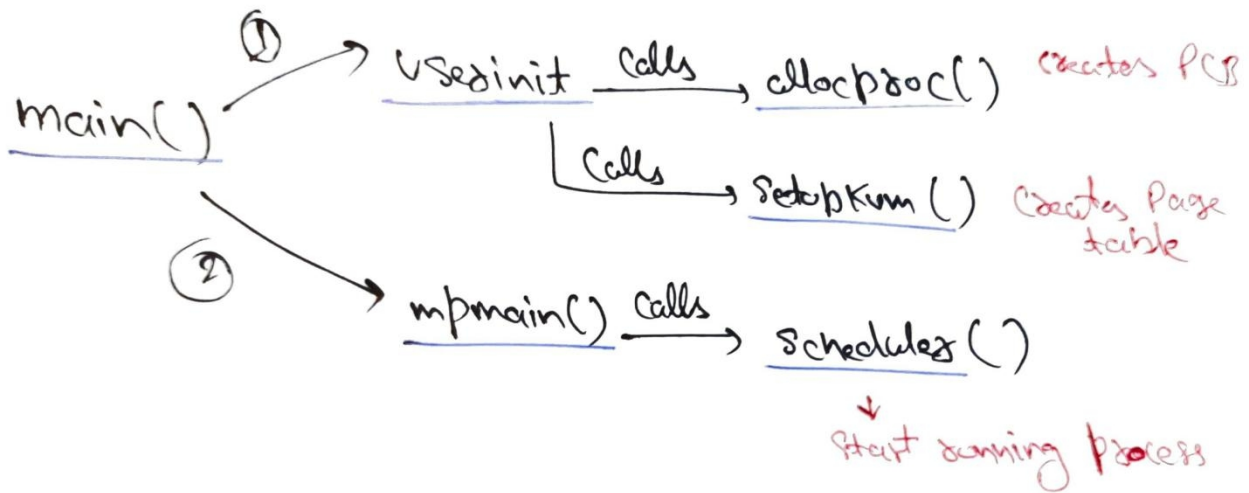 ①
userinit calls allocproc() creates PCB
main()
calls setupkvm() creates Page
table
②
mpmain() calls scheduler()
start running process